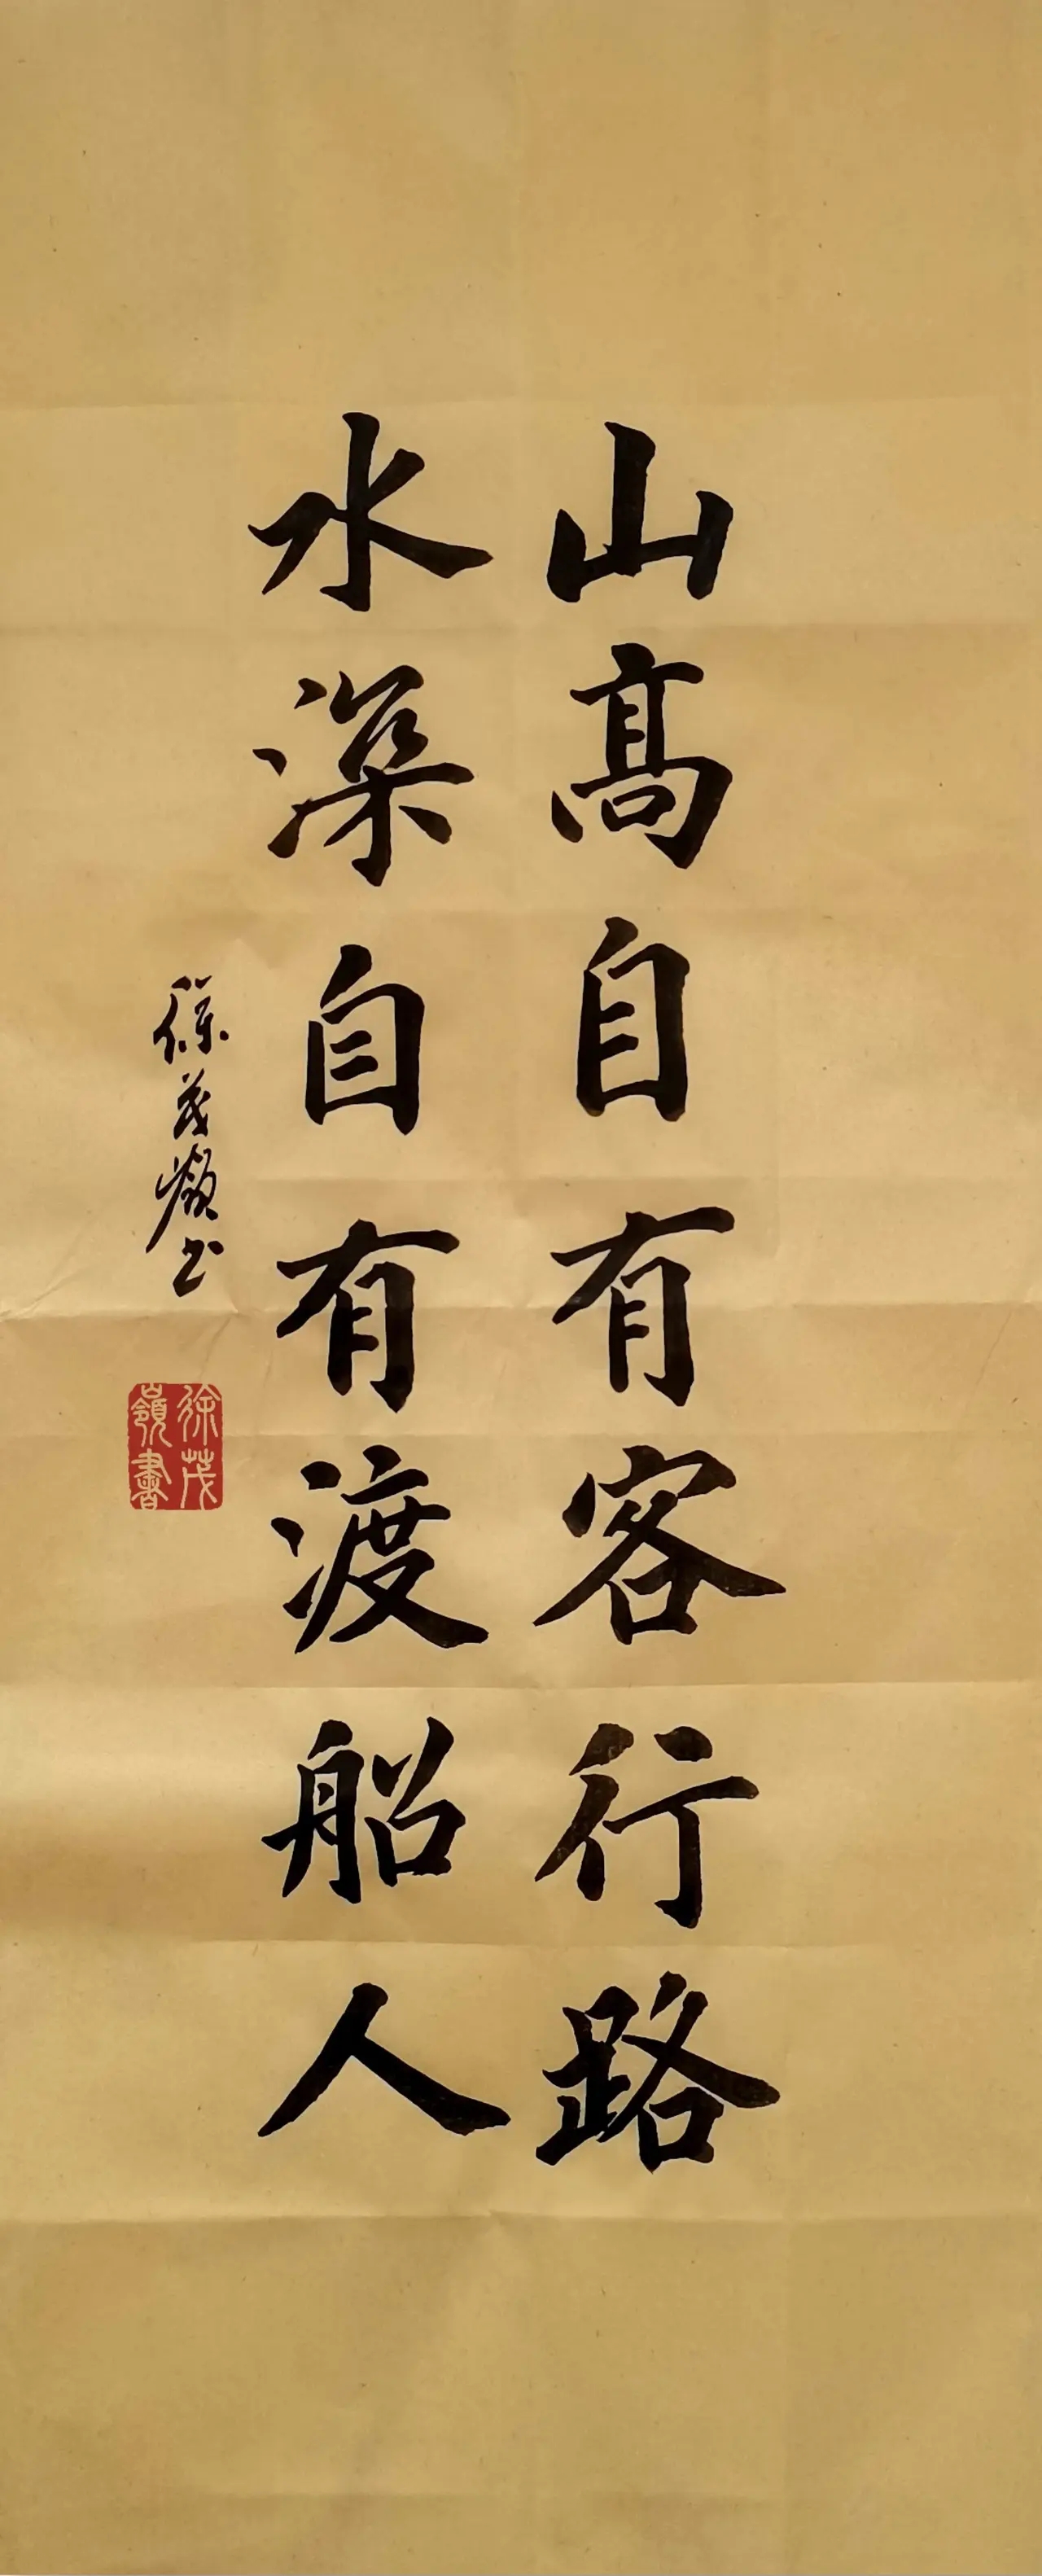 山高自有客行路
水深自有渡船人
徐茂嶺书
徐茂嶺書